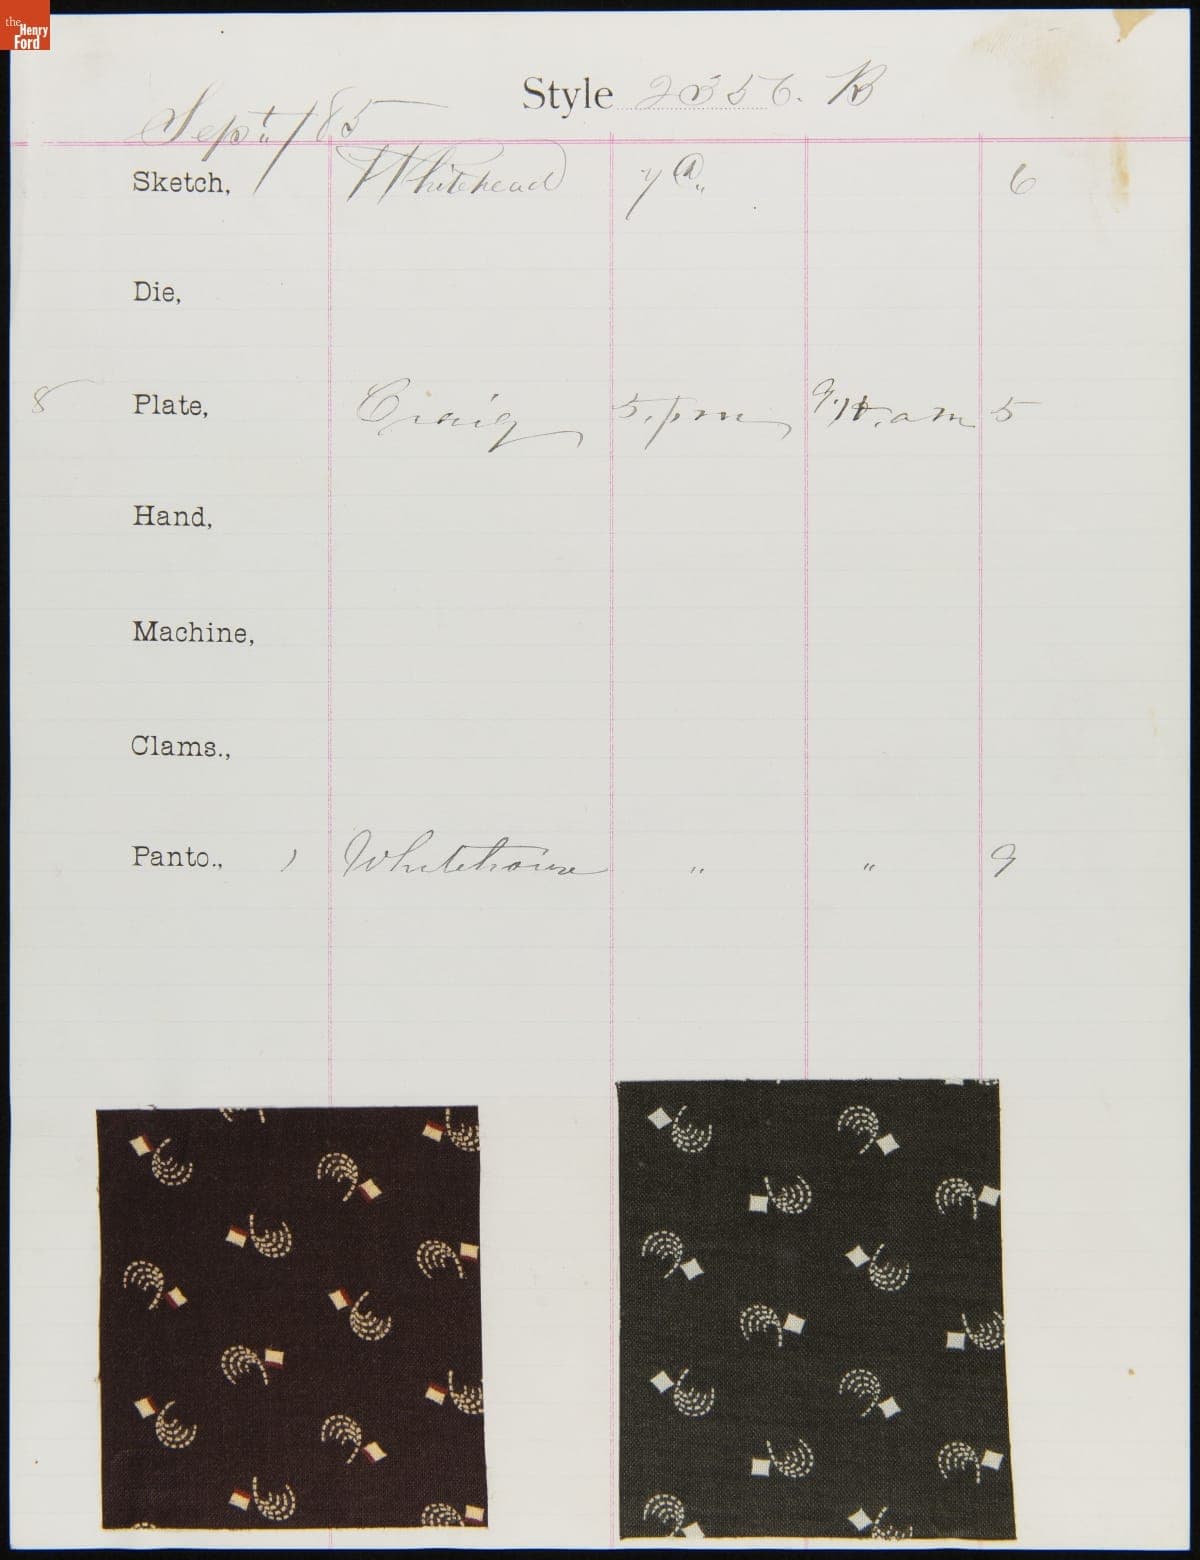 the
Henry
Ford
Style 2356. B
Sept. /85
Sketch, Whitehead 6
Die,
8 Plate, Craig 5. pm a m 5
Hand,
Machine,
Clams.,
Panto., ) Whitehouse " " 9